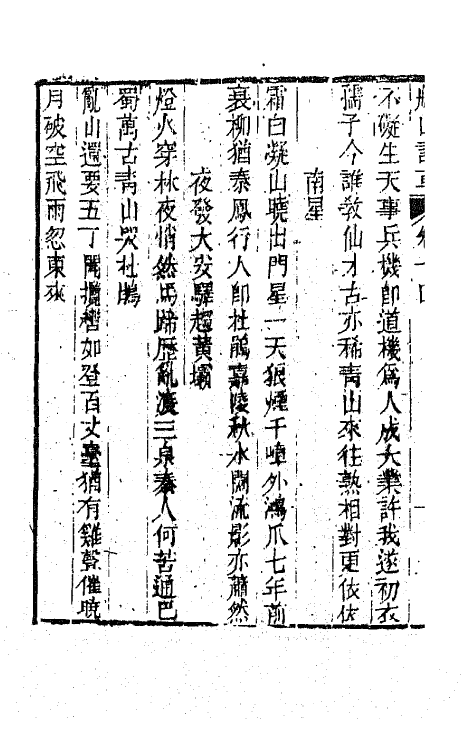 船山詩草 卷十四
不礙生天事兵機卽道機爲人成大業許我遂初衣
孺子今誰敎仙才古亦稀靑山來往熟相對更依依
南星
霜白凝山曉出門星一天狼煙千嶂外鴻爪七年前
衰柳猶秦鳳行人卽杜鵑嘉陵秋水闊流影亦蕭然
夜發大安驛趨黃壩
燈火穿林夜悄然馬蹄歷亂渡三泉秦人何苦通巴
蜀萬古靑山哭杜鵑
亂山還要五丁開攬轡如登百丈臺猶有雞聲催曉
月破空飛雨忽東來